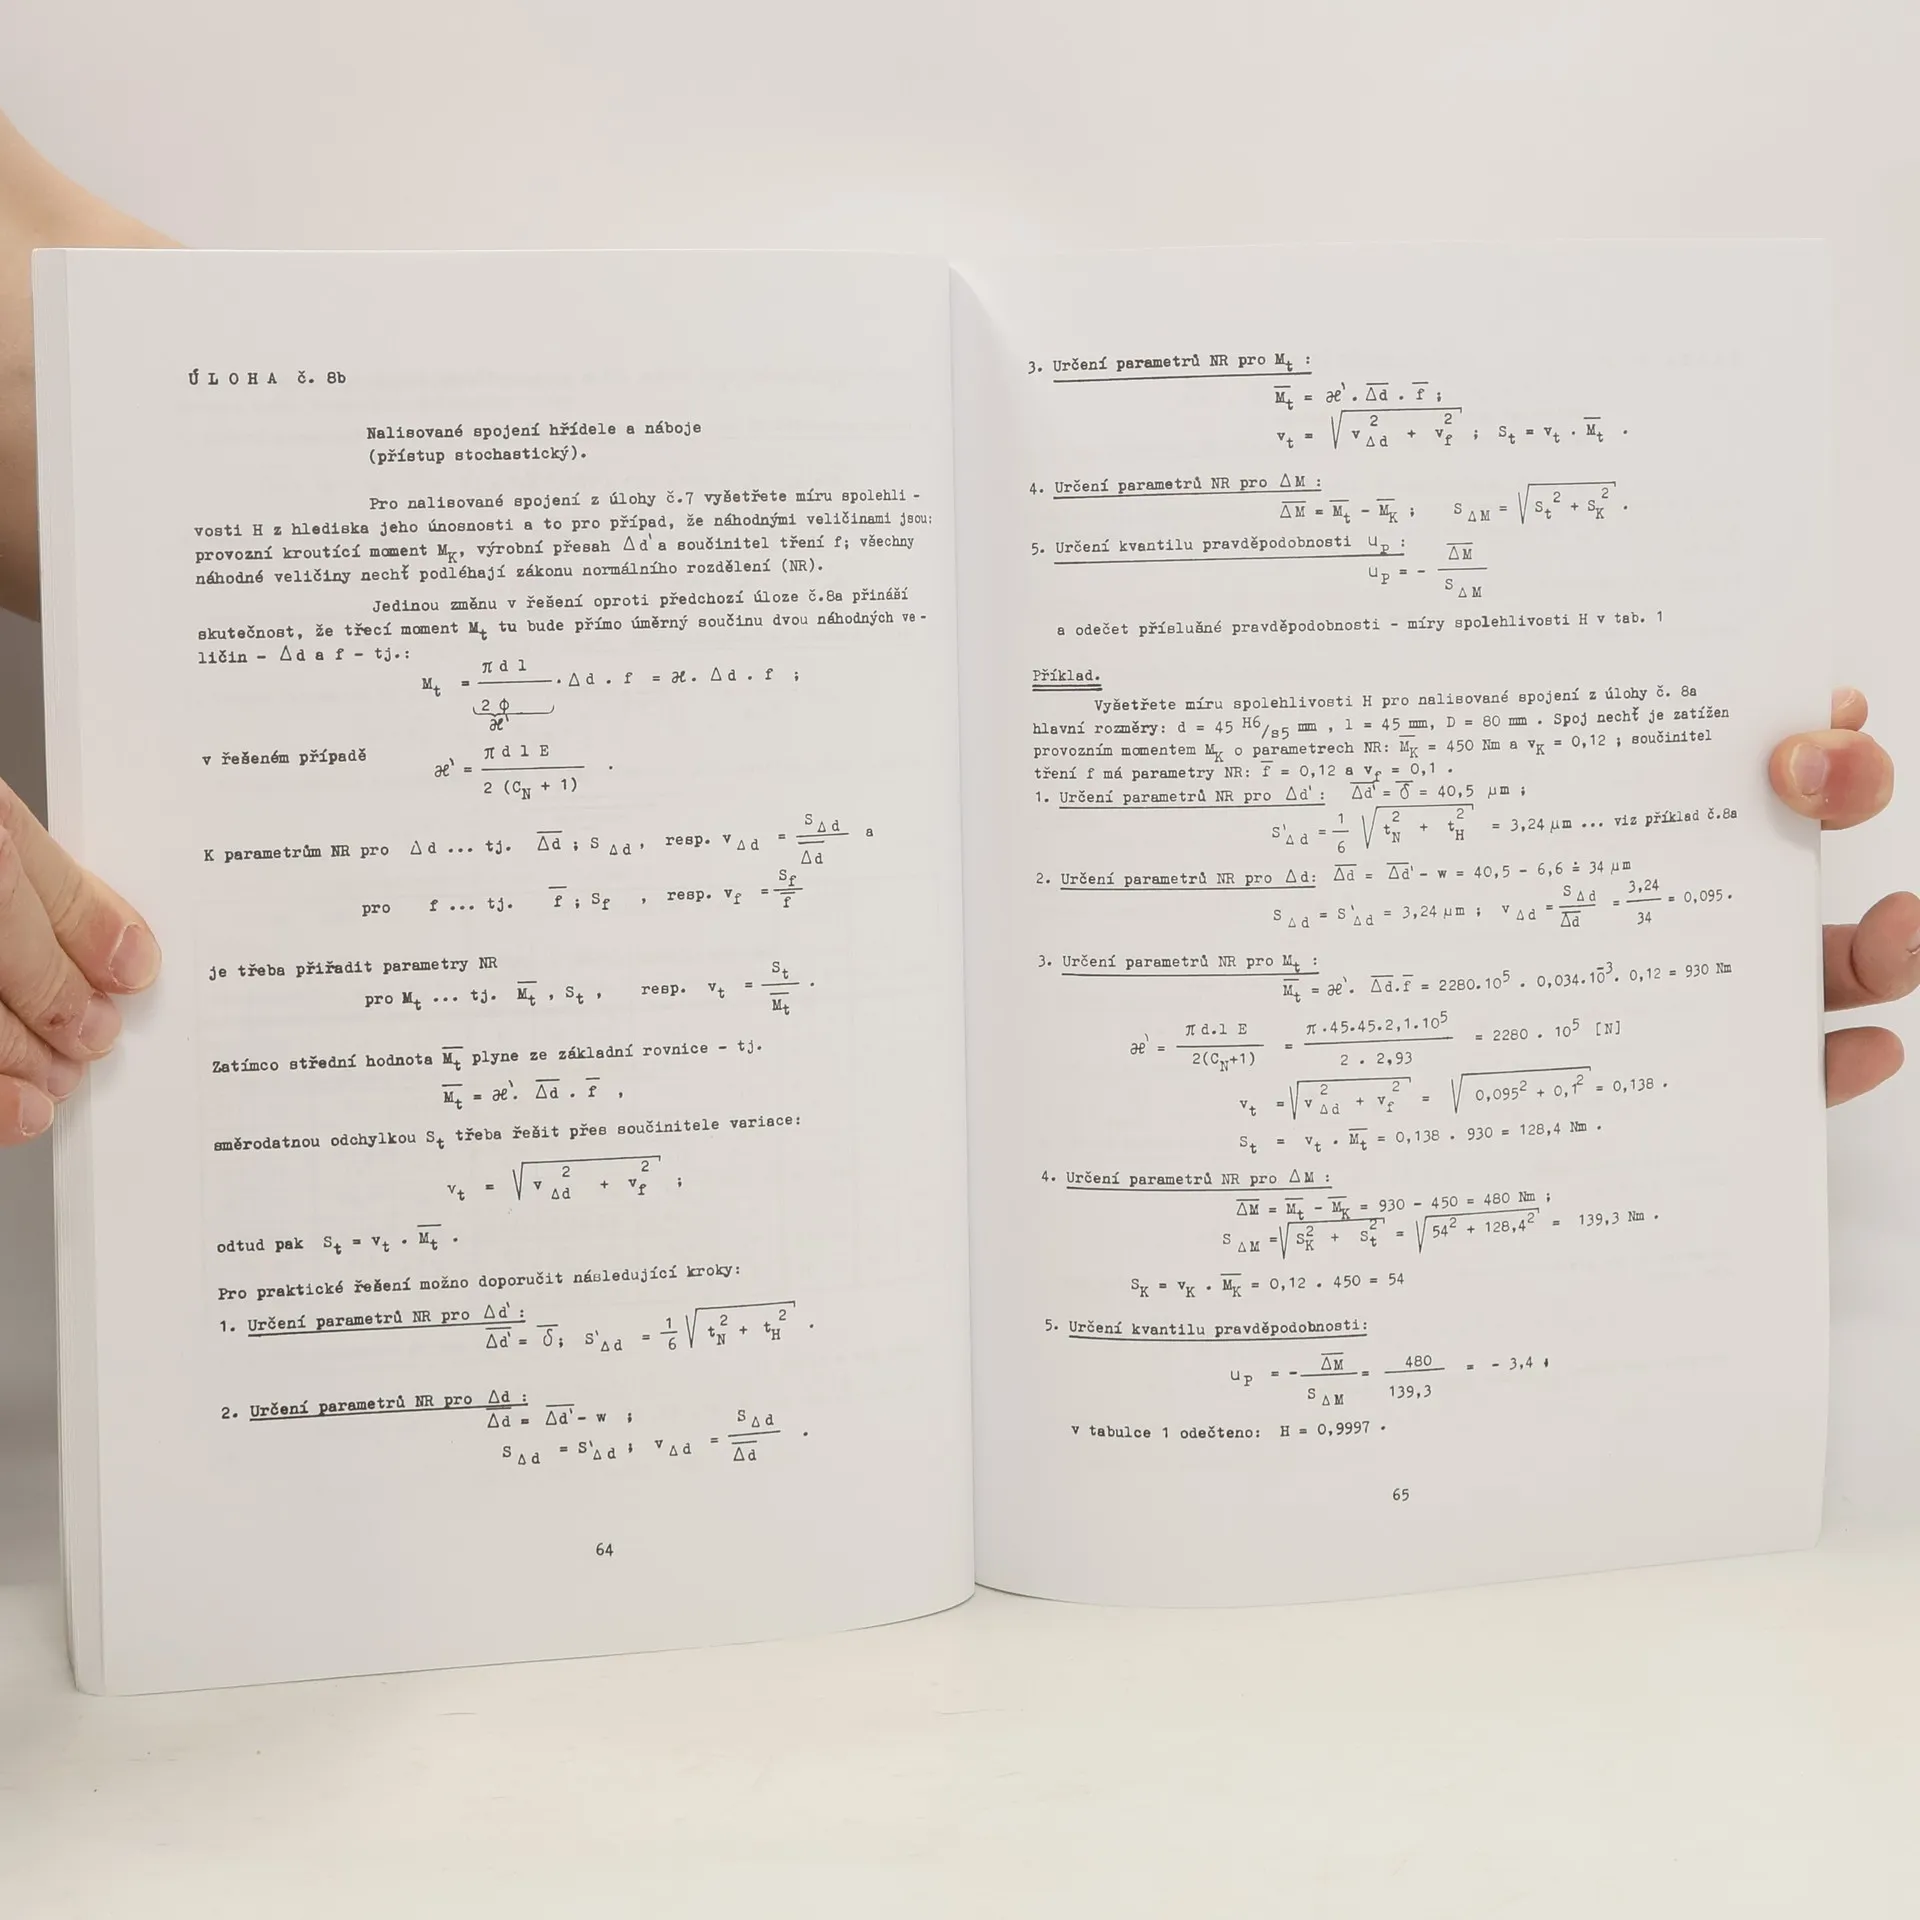 Ú L O H A č. 8b
Nalisované spojení hřídele a náboje
(přístup stochastický).
Pro nalisované spojení z úlohy č.7 vyšetřete míru spolehli -
vosti H z hlediska jeho únosnosti a to pro případ, že náhodnými veličinami jsou:
provozní kroutící moment M_K, výrobní přesah Δd' a součinitel tření f; všechny
náhodné veličiny nechť podléhají zákonu normálního rozdělení (NR).
Jedinou změnu v řešení oproti předchozí úloze č.8a přináší
skutečnost, že třecí moment M_t tu bude přímo úměrný součinu dvou náhodných ve -
ličin - Δd a f - tj.:
M_t = π d l / 2 ϕ . Δd . f = æ. Δd . f ;
æ'
v řešeném případě æ' = π d l E / 2 (C_N + 1) .
K parametrům NR pro Δd ... tj. Δd̅ ; S_Δd , resp. v_Δd = S_Δd / Δd̅ a
pro f ... tj. f̅ ; S_f , resp. v_f = S_f / f̅
je třeba přiřadit parametry NR
pro M_t ... tj. M̅_t , S_t , resp. v_t = S_t / M̅_t .
Zatímco střední hodnota M̅_t plyne ze základní rovnice - tj.
M̅_t = æ'. Δd̅ . f̅ ,
směrodatnou odchylkou S_t třeba řešit přes součinitele variace:
v_t = √(v²_Δd + v²_f) ;
odtud pak S_t = v_t . M̅_t .
Pro praktické řešení možno doporučit následující kroky:
1. Určení parametrů NR pro Δd' :
Δd̅' = δ̅; S'_Δd = 1/6 √(t²_N + t²_H) .
2. Určení parametrů NR pro Δd :
Δd̅ = Δd̅' - w ;
S_Δd = S'_Δd ; v_Δd = S_Δd / Δd̅ .
64
3. Určení parametrů NR pro M_t :
M̅_t = æ' . Δd̅ . f̅ ;
v_t = √(v²_Δd + v²_f) ; S_t = v_t . M̅_t .
4. Určení parametrů NR pro ΔM :
ΔM̅ = M̅_t - M̅_K ; S_ΔM = √(S_t² + S_K²) .
5. Určení kvantilu pravděpodobnosti u_p :
u_p = - ΔM̅ / S_ΔM
a odečet příslušné pravděpodobnosti - míry spolehlivosti H v tab. 1
Příklad.
Vyšetřete míru spolehlivosti H pro nalisované spojení z úlohy č. 8a
hlavní rozměry: d = 45 H6/s5 mm , l = 45 mm, D = 80 mm . Spoj nechť je zatížen
provozním momentem M_K o parametrech NR: M̅_K = 450 Nm a v_K = 0,12 ; součinitel
tření f má parametry NR: f̅ = 0,12 a v_f = 0,1 .
1. Určení parametrů NR pro Δd' : Δd̅' = δ̅ = 40,5 µm ;
S'_Δd = 1/6 √(t²_N + t²_H) = 3,24 µm ... viz příklad č.8a
2. Určení parametrů NR pro Δd: Δd̅ = Δd̅' - w = 40,5 - 6,6 ≐ 34 µm
S_Δd = S'_Δd = 3,24 µm ; v_Δd = S_Δd / Δd̅ = 3,24 / 34 = 0,095 .
3. Určení parametrů NR pro M_t :
M̅_t = æ'. Δd̅.f̅ = 2280.10⁵ . 0,034.10⁻³. 0,12 = 930 Nm
æ' = π d.l E / 2(C_N+1) = π .45.45.2,1.10⁵ / 2 . 2,93 = 2280 . 10⁵ [N]
v_t = √(v²_Δd + v²_f) = √(0,095² + 0,1²) = 0,138 .
S_t = v_t . M̅_t = 0,138 . 930 = 128,4 Nm .
4. Určení parametrů NR pro ΔM :
ΔM̅ = M̅_t - M̅_K = 930 - 450 = 480 Nm ;
S_ΔM = √(S²_K + S²_t) = √(54² + 128,4²) = 139,3 Nm .
S_K = v_K . M̅_K = 0,12 . 450 = 54
5. Určení kvantilu pravděpodobnosti:
u_p = - ΔM̅ / S_ΔM = 480 / 139,3 = - 3,4 ;
v tabulce 1 odečteno: H = 0,9997 .
65